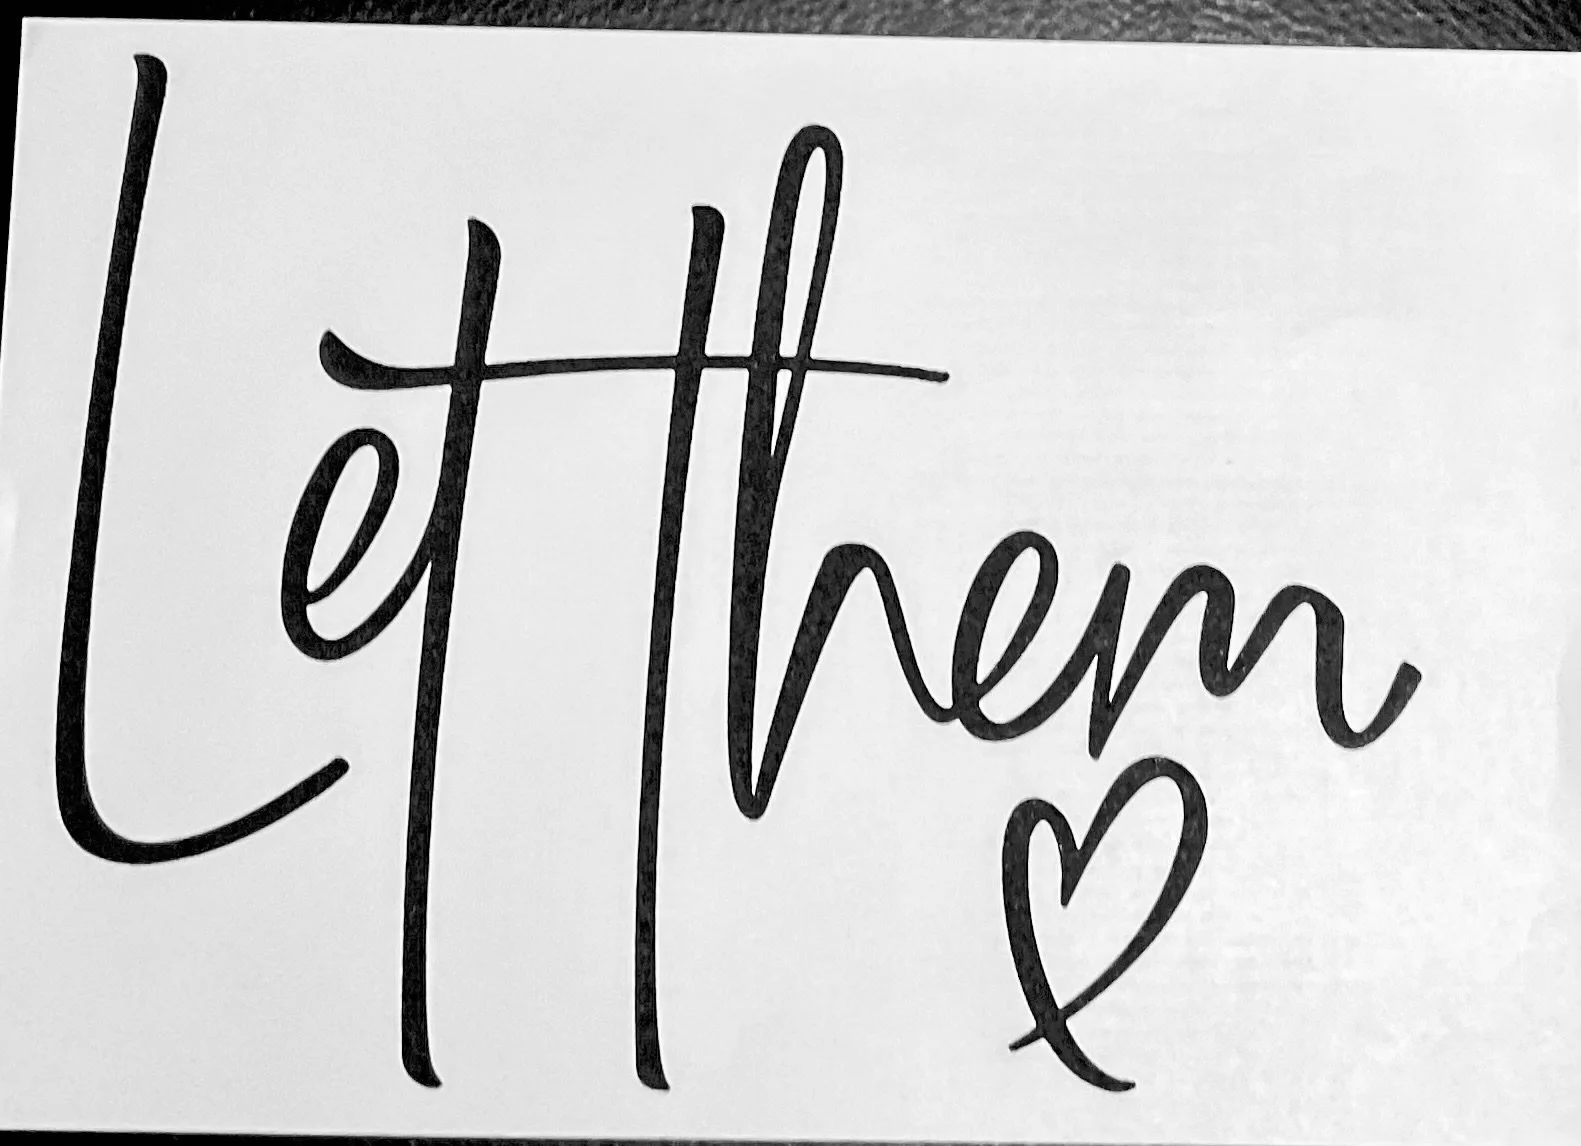 Let them